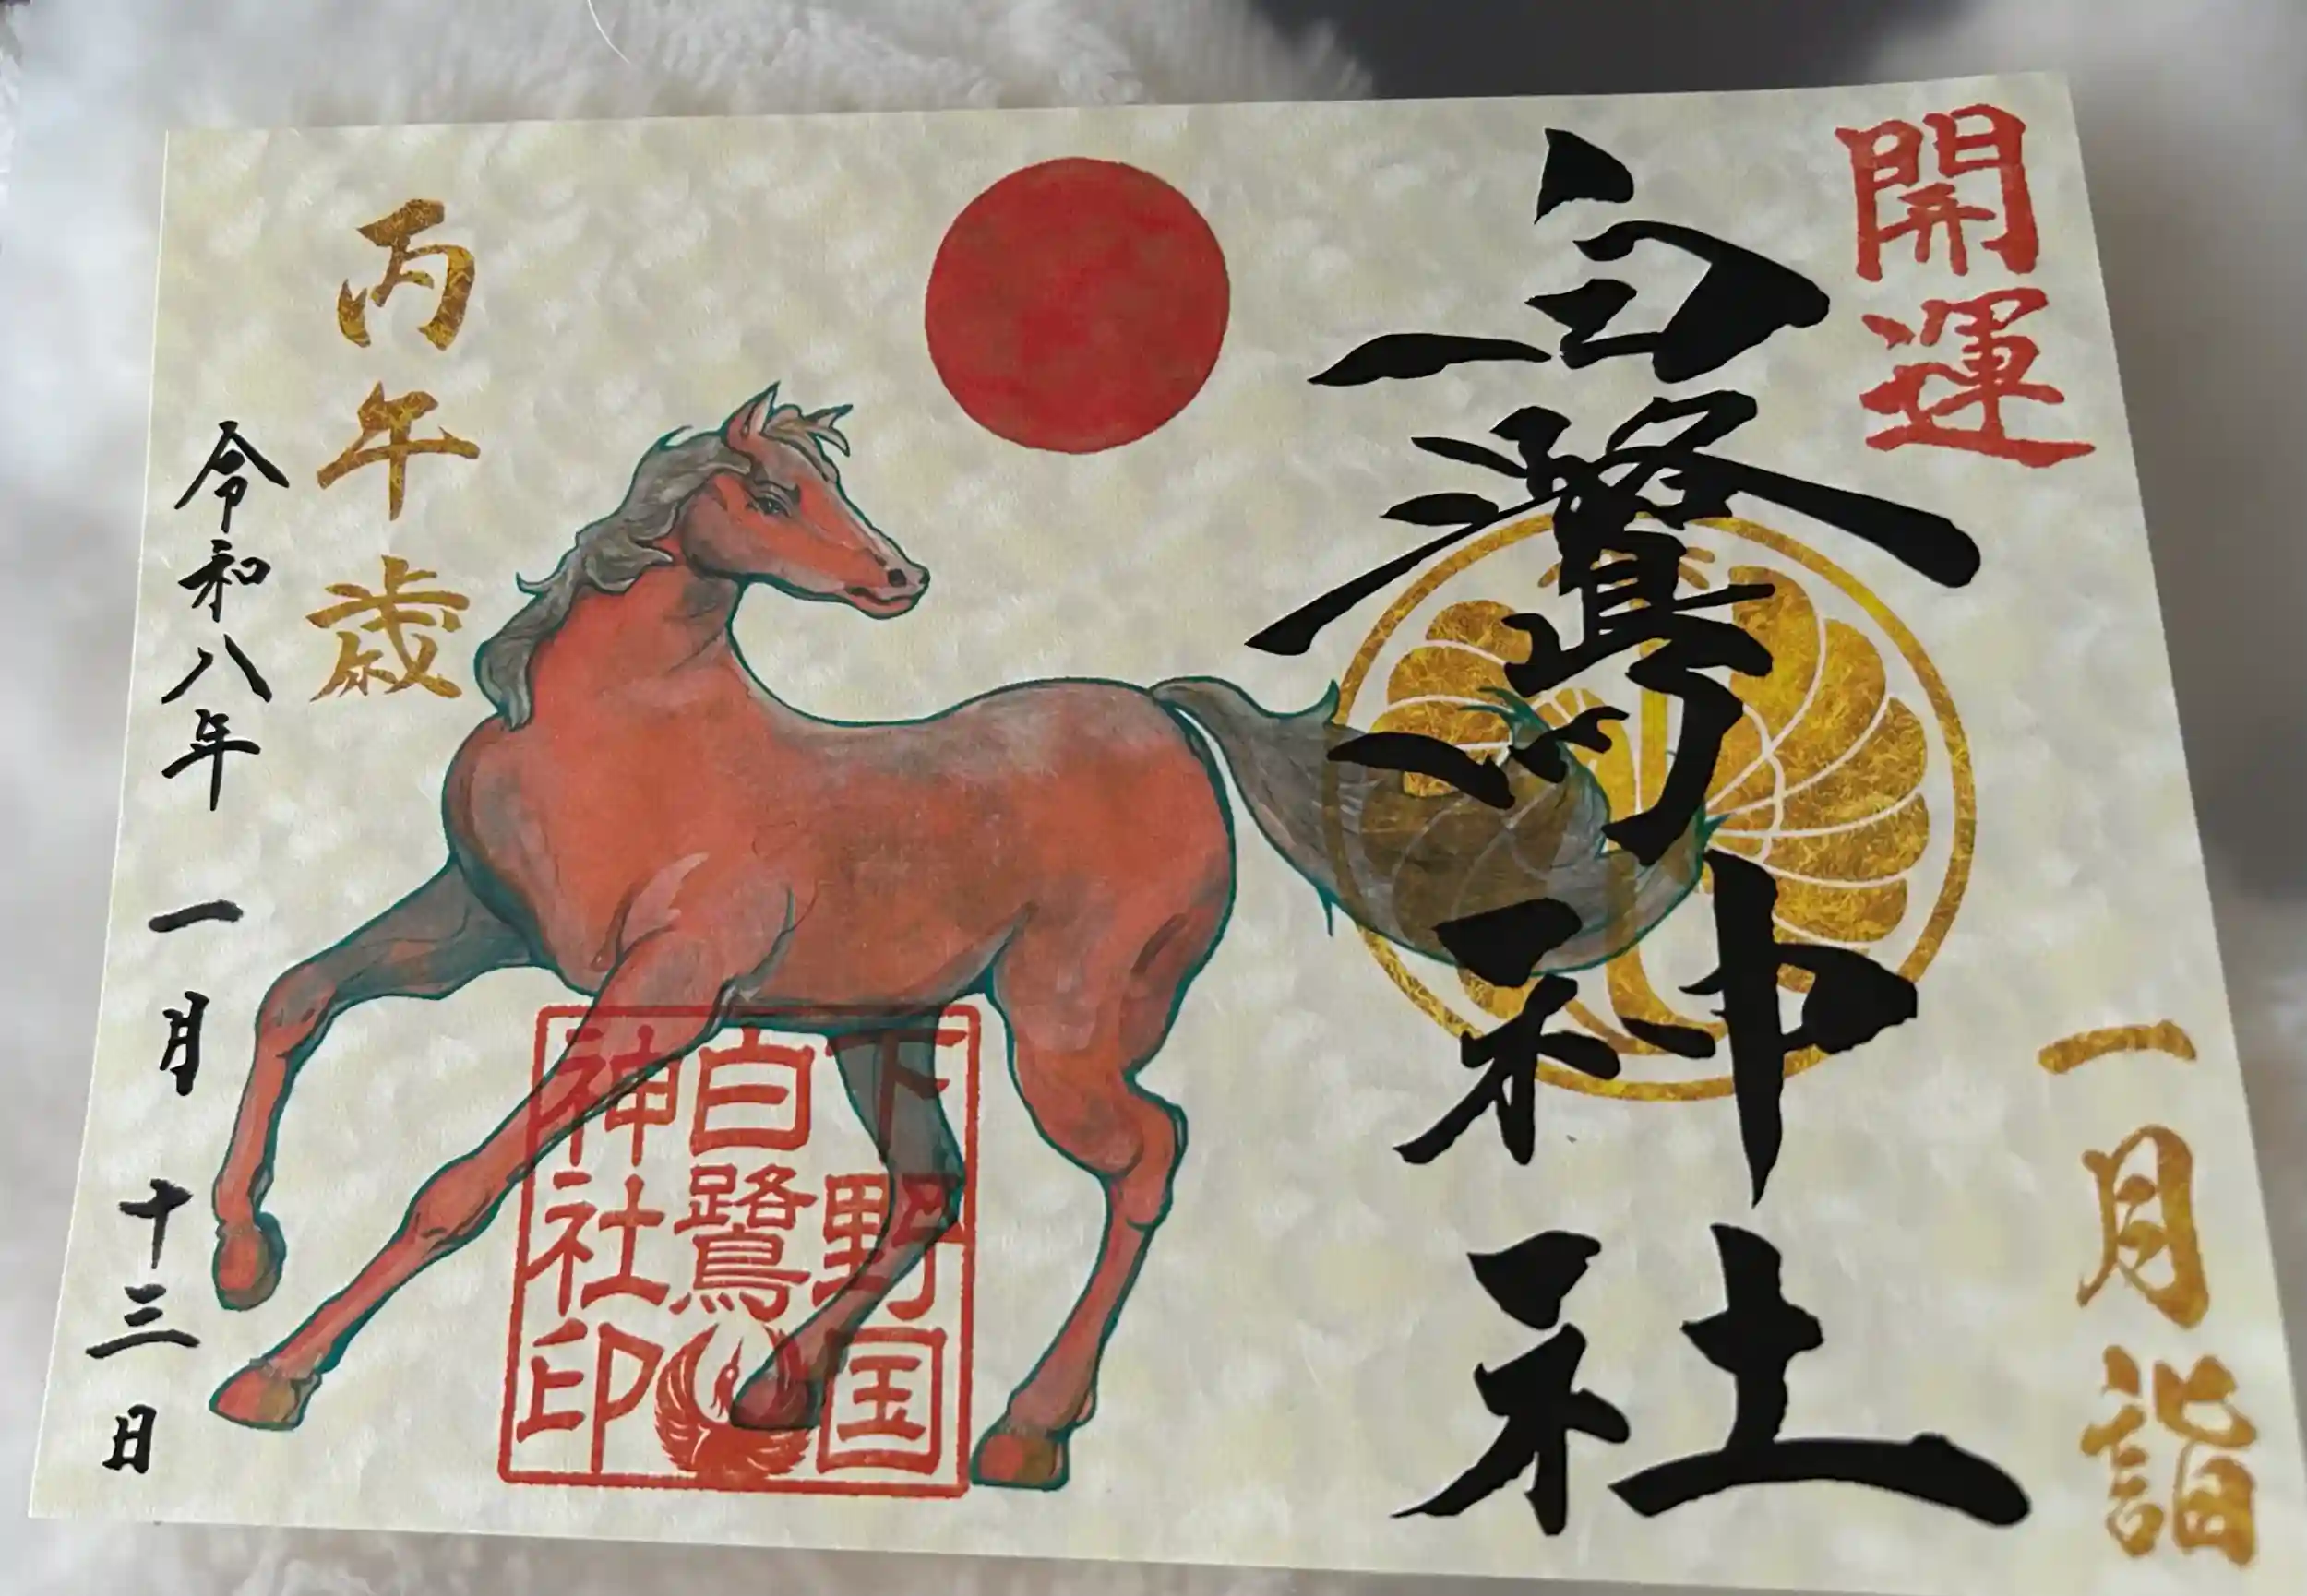 開運
一月詣
白鷺神社
下野国
白鷺
神社印
丙午歳
令和八年一月十三日